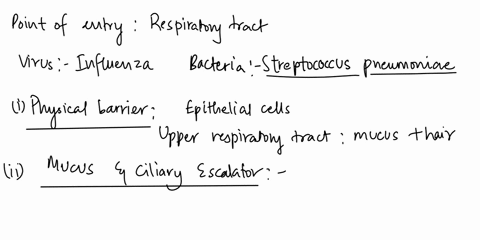 Point of entry : Respiratory tract
Virus :- Influenza Bacteria :- Streptococcus pneumoniae
(i) Physical barrier : Epithelial cells
Upper respiratory tract : mucus + hair
(ii) Mucus & Ciliary Escalator : -